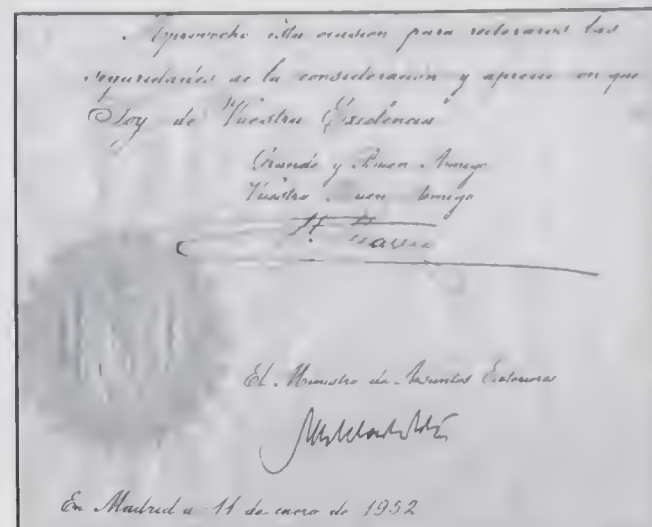 Aprovecho esta ocasión para reiteraros las
seguridades de la consideración y aprecio en que
Soy de Vuestra Excelencia
Grande y Buen Amigo
Vuestro Buen Amigo
F. Franco
El Ministro de Asuntos Exteriores
En Madrid a 11 de enero de 1952